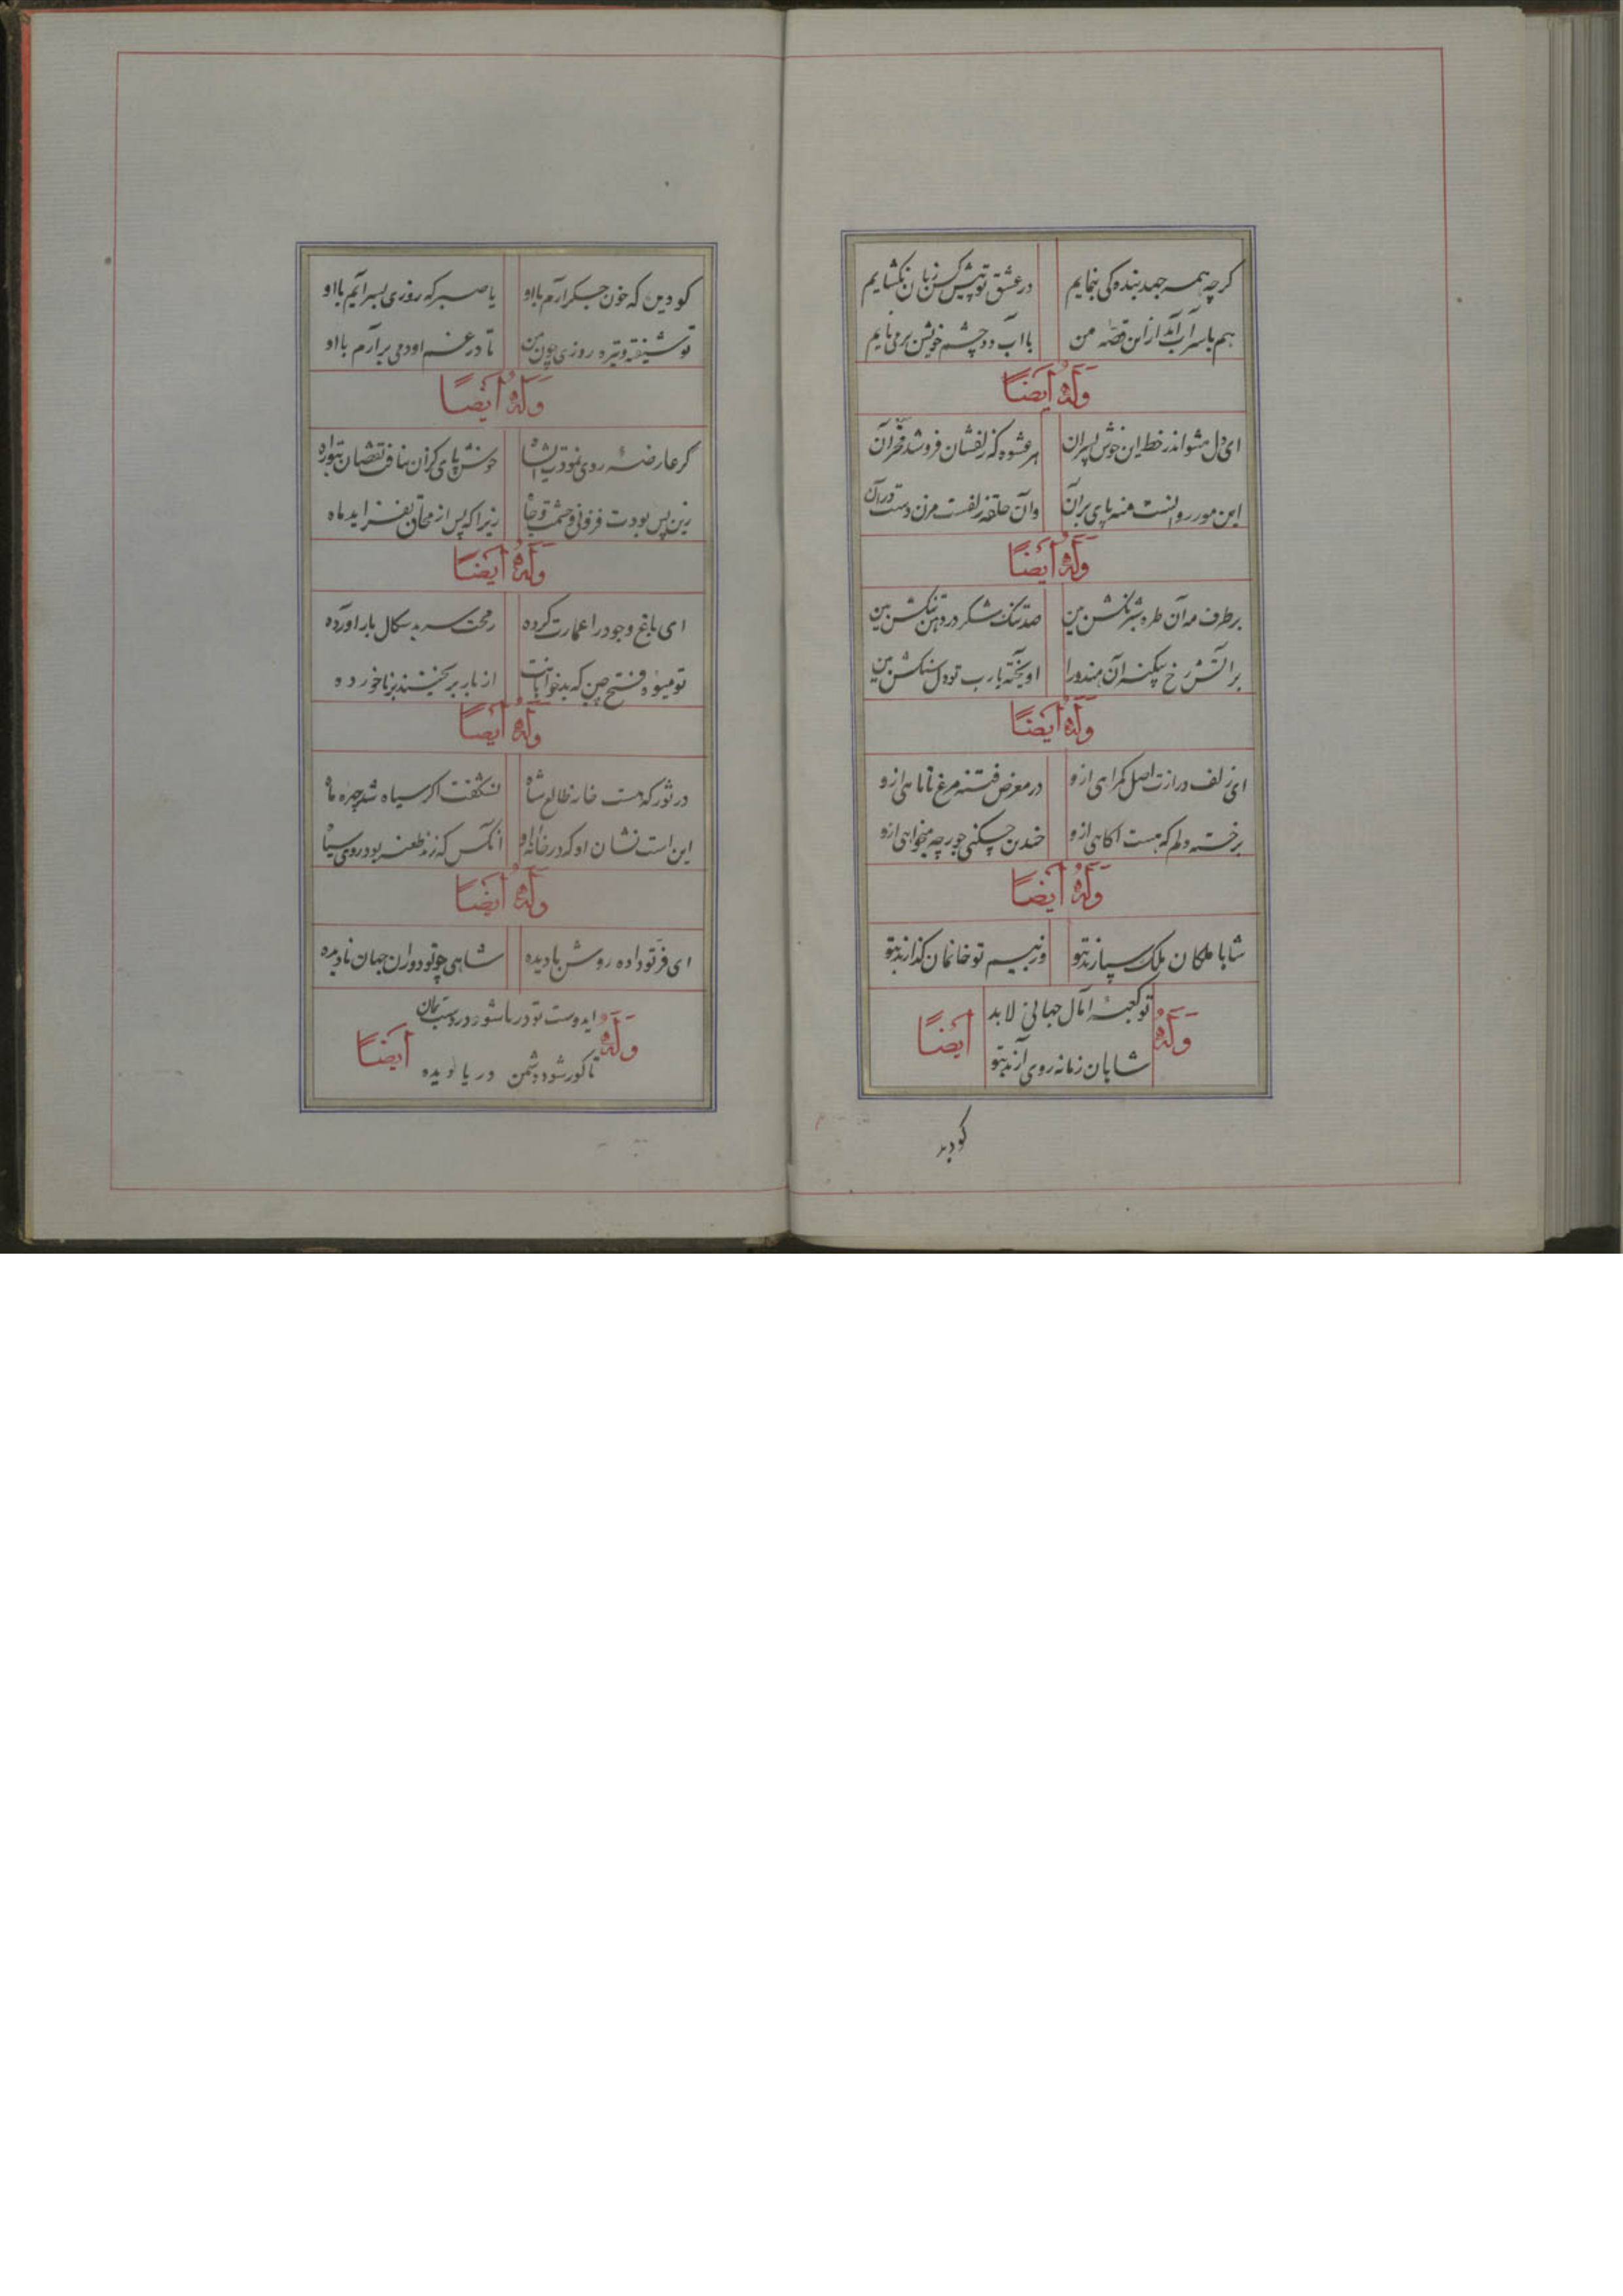 کرچه همه جهد بنده کی بنمایم در عشق تو پیش کس زبان نکشایم
هم با سر آب آید از این قصه من با آب دو چشم خویش بر می‌آیم
وَلَهُ اَیضاً
ای دل مشو اندر خط این خوش پسران هر عشوه که زلفشان فروشد مخر آن
این مور رو انست منه پای بر آن وآن حلقه زلفست مزن دست در آن
وَلَهُ اَیضاً
بر طرف مه آن طره شبرنکش بین صد تنک شکر در دهن تنکش بین
بر آتش رخ آن هندو را آویخته یارب تو دل سنکش بین
وَلَهُ اَیضاً
ای زلف درازت اصل کمراهی ازو در معرض فتنه مرغ تا ماهی ازو
بر خسته دلم که هست آکاهی ازو چندین چکنی جور چه میخواهی ازو
وَلَهُ اَیضاً
شاها ملکان ملک سپارند بتو وز بیم تو خانمان کذارند بتو
وَلَهُ تو کعبهٔ آمال جهانی لابد اَیضاً
شاهان زمانه روی آرند بتو
کو دید
کو دیده که خون جکر آرم با او یا صبر که روزی بسر آیم با او
تو شیفته و تیره روزی چون من تا در غم او دمی برآرم با او
وَلَهُ اَیضاً
کر عارضهٔ روی نمودت شاها خوش باش کزان نیافت نقصان بتو راه
زین پس بودت فزونی حشمت و جاه زیرا که پس از محاق بفزاید ماه
وَلَهُ اَیضاً
ای باغ وجود را عمارت کرده رمحت سر بدسکال بار آورده
تو میوه فتح چین که بدخواهانت از بار بر نا خورده
وَلَهُ اَیضاً
در ثور که هست خانه طالع شاه نشکفت اکر سیاه شد چهره ماه
این است نشان او که در خانه او آنکس که زند طعنه بود روی سیاه
وَلَهُ اَیضاً
ای فر تو داده روشنی با دیده شاهی چو تو دوران جهان نادیده
وَلَهُ ایدوست تو در اَیضاً
تا کور شود دشمن دریا دیده